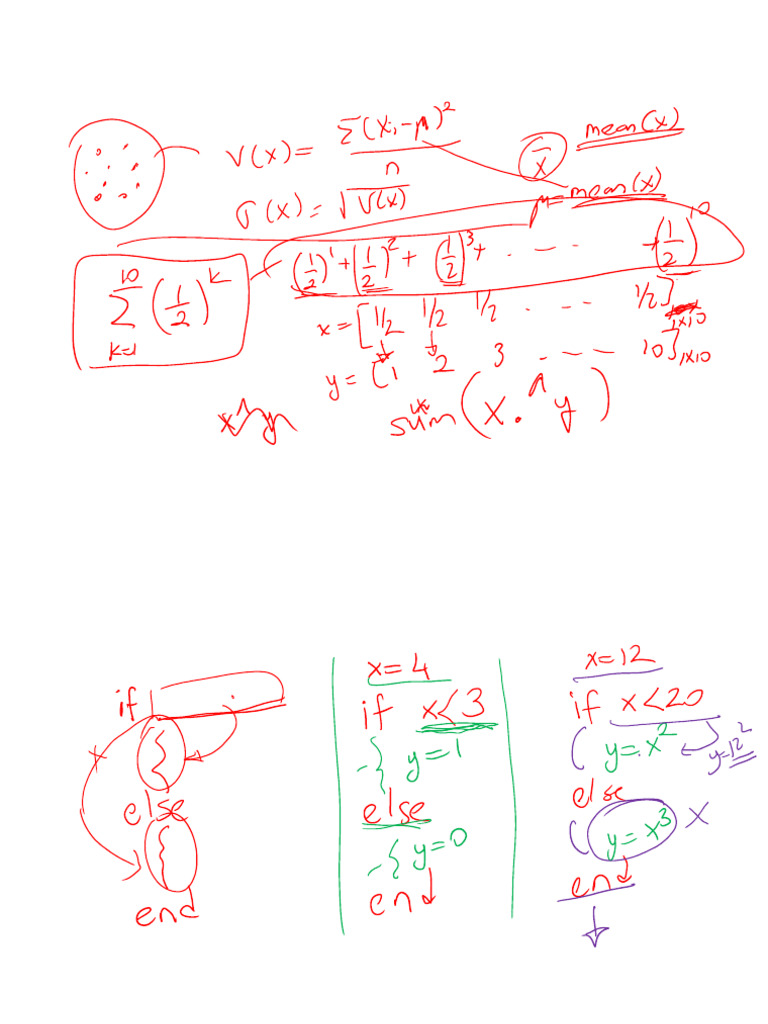 V(x) = Σ(xᵢ-μ)² / n
x̄ mean(x)
σ(x) = √V(x)
μ = mean(x)
∑_{k=1}^{10} (1/2)^k
(1/2)¹ + (1/2)² + (1/2)³ + . - - - + (1/2)¹⁰
x = [1/2 1/2 1/2 . - - - 1/2]₁ₓ₁₀
y = [1 2 3 . - - - 10]₁ₓ₁₀
sum(x.^y)
if
else
end
x=4
if x<3
y=1
else
y=0
end
x=12
if x<20
y=x²
y=12²
else
y=x³ x
end